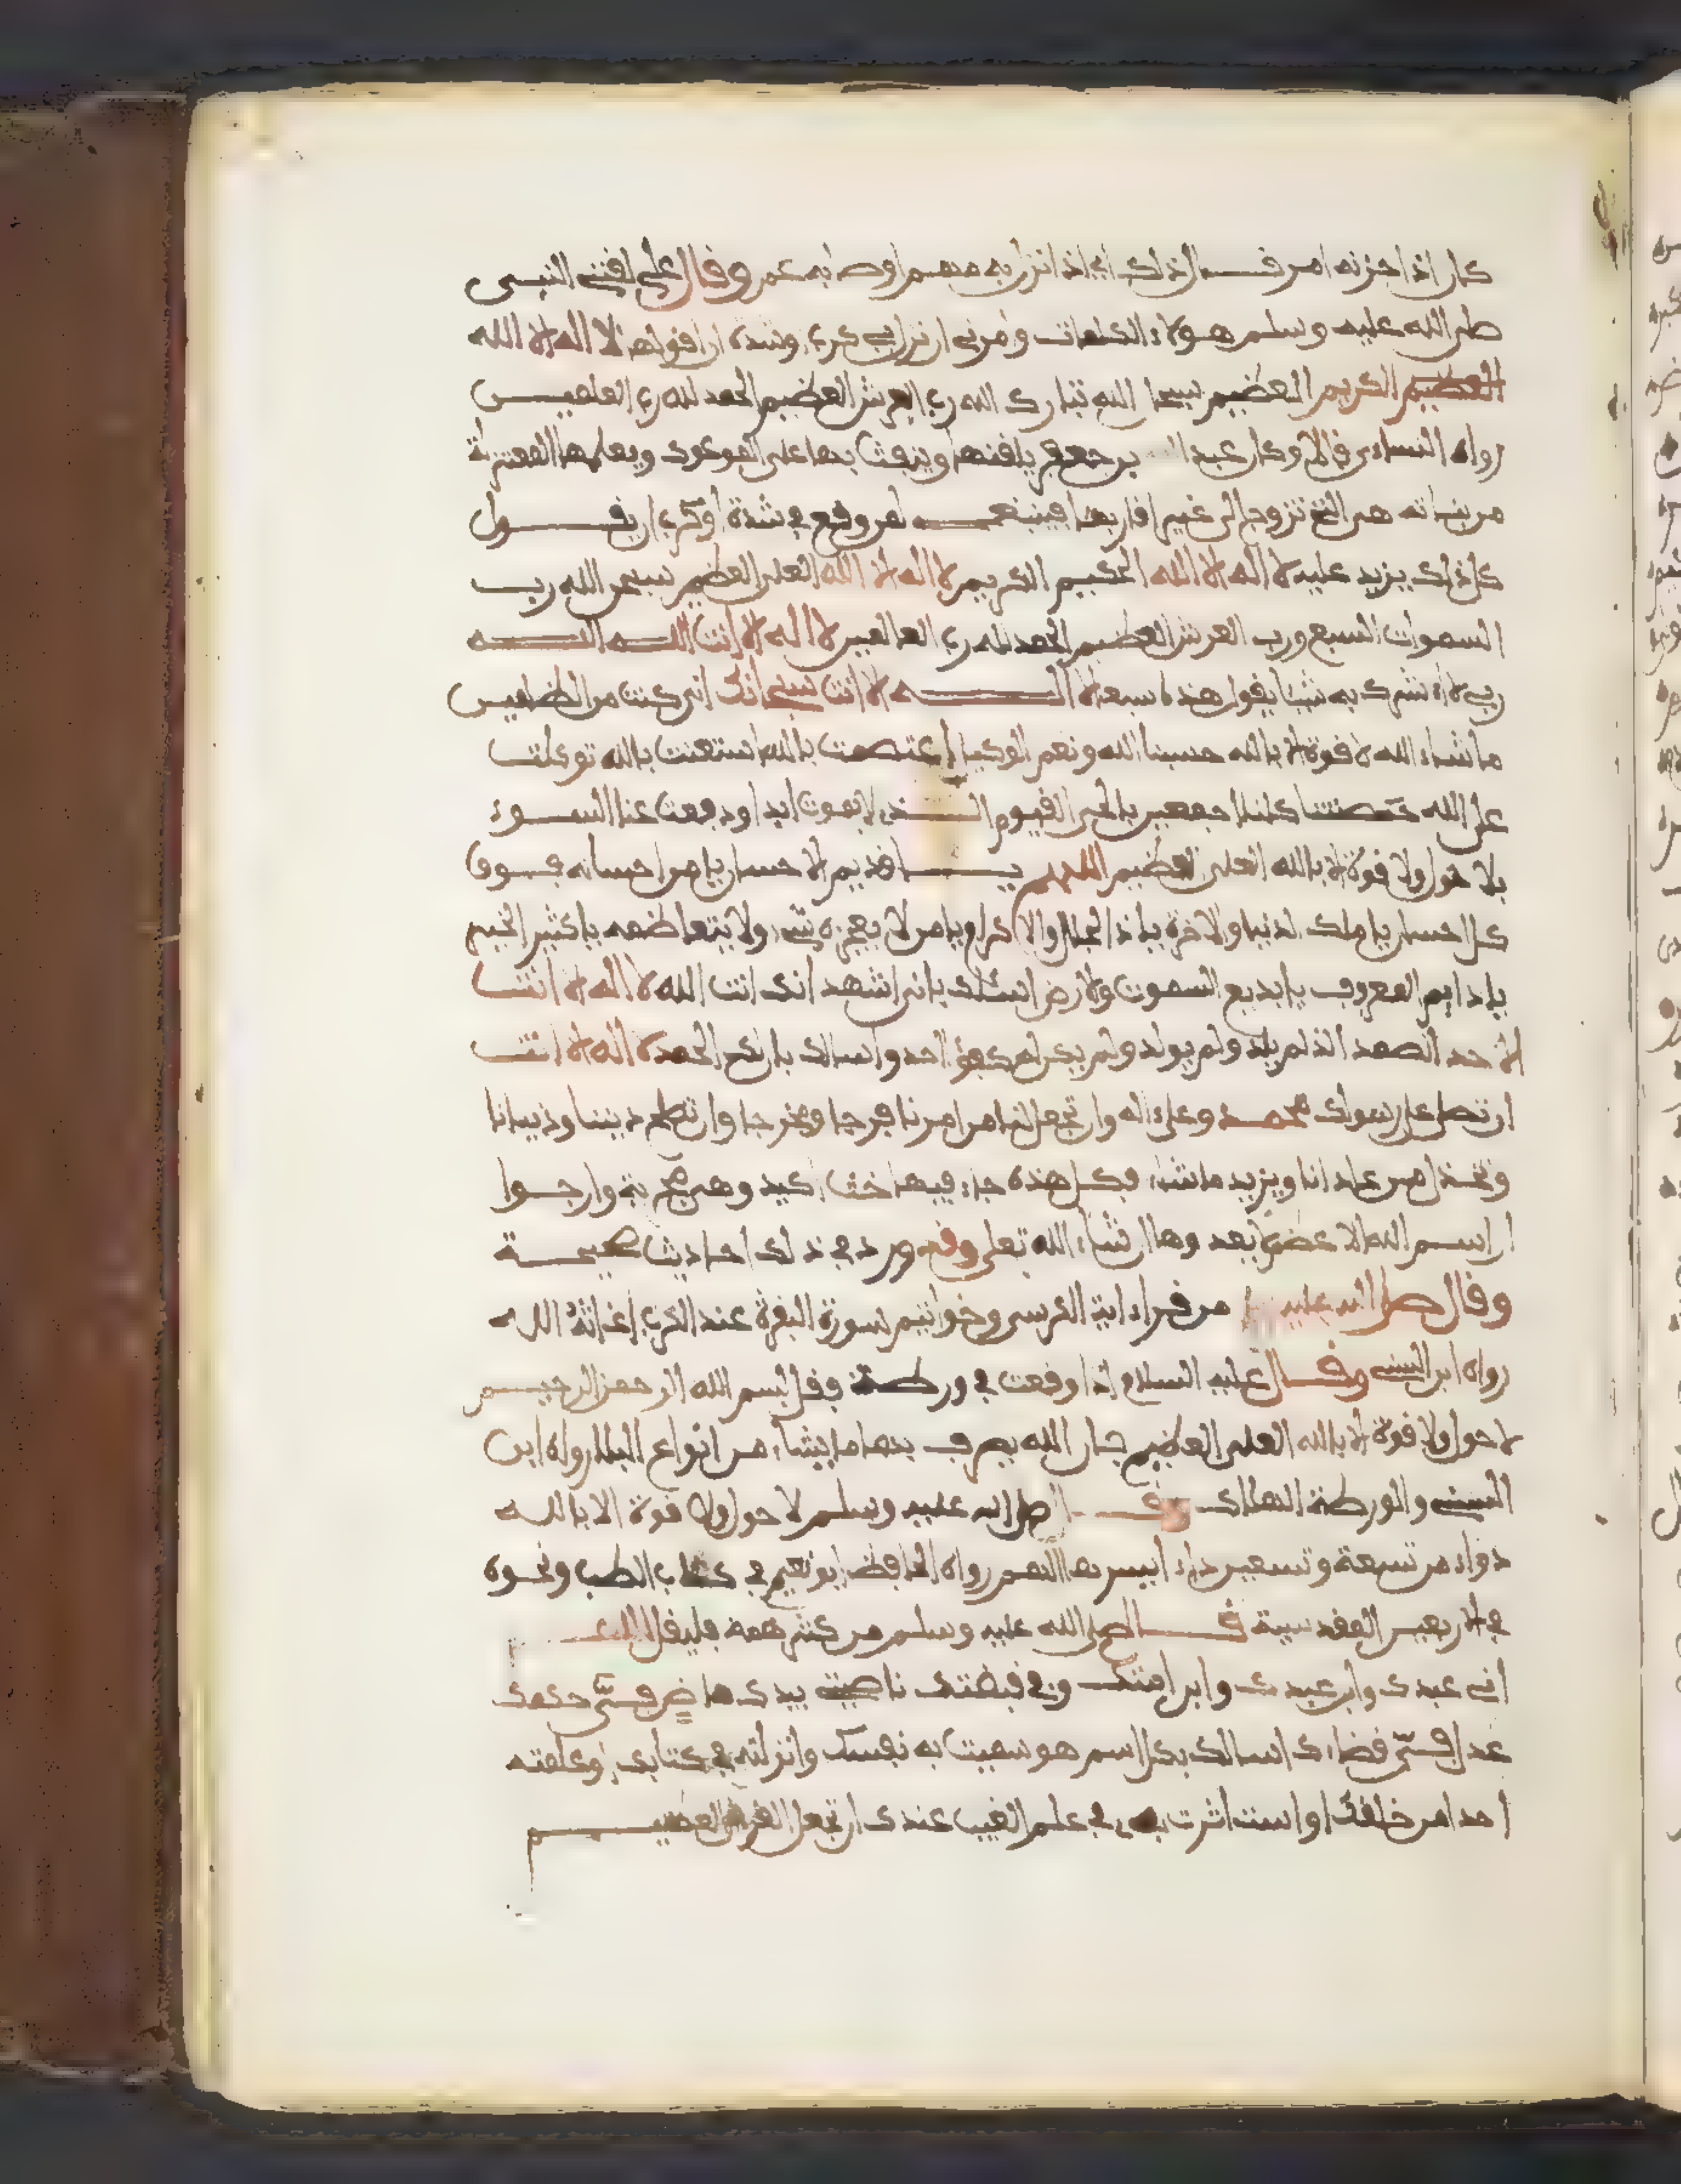 كان اذا حزنه امر قال ذلك اي اذا نزل به مهم او صابه غم وقال علي لقنني النبي
صلى الله عليه وسلم هولاء الكلمات وامرني ان نزل بي كرب وشدة ان اقولها لا اله الا الله
العظيم الكريم العظيم سبحا الله تبارك الله رب العرش العظيم الحمد لله رب العلمين
رواه النساءي قال وكان عبد الله بن جعفر يلقنها وينفث بها على الموعوك ويعلمها المغتربة
من بناته هي التي تزوج الى غير اقاربها فينبغي لمن وقع في شدة او كرب ان يقول
كل ذلك يزيد عليه لا اله الا الله الحكيم الكريم لا اله الا الله العلي العظيم سبحن الله رب
السموات السبع ورب العرش العظيم الحمد لله رب العالمين لا اله الا انت الله الله
ربي لا اشرك به شيا يقول هذه سبعة لا اله الا انت سبحانك اني كنت من الظلمين
ما شاء الله لا قوة الا بالله حسبنا الله ونعم الوكيل اعتصمت بالله استعنت بالله توكلت
على الله تحصنتنا كلنا اجمعين بالحي القيوم الذي لا يموت ابدا ودفعت عنا السوء
بلا حول ولا قوة الا بالله العلي العظيم اللهم يا قديم الاحسان يا من احسانه فوق
كل احسان يا ملك الدنيا والاخرة يا ذا الجلال والاكرام يا من لا يعجزه شيء ولا يتعاظمه يا كثير الخير
يا دايم المعروف يا بديع السموت والارض اسئلك باني اشهد انك انت الله لا اله الا انت
الاحد الصمد الذ لم يلد ولم يولد ولم يكن له كفؤا احد واسالك بان لك الحمد لا اله الا انت
ان تصلي على رسولك محمد وعلى اله وان تجعل لنا من امرنا فرجا ومخرجا وان
من عادانا ويزيد ما شاء فكل هذه جاء فيها اكيد وهي مجربة وارجوا
ان اسم الله الاعظم يعدوها ان شاء الله تعلى وقد ورد في ذلك احاديث صحيحة
وقال صلى الله عليه من قرا اية الكرسي وخواتيم سورة البقرة عند الكرب اغاثه الله
رواه ابن السني وقال عليه السلام اذا وقعت في ورطة فقل بسم الله الرحمن الرحيم
لا حول ولا قوة الا بالله العلي العظيم فان الله يصرف بها ما يشاء من انواع البلا رواه ابن
السني والورطة الهلاك وقال صلى الله عليه وسلم لا حول ولا قوة الا بالله
دواء من تسعة وتسعين داء ايسرها الهم رواه الحافظ ابو نعيم في كتاب الطب ونحوه
في الاربعين القدسية قال صلى الله عليه وسلم من كثر همه فليقل اللهم
اني عبدك وابن عبدك وابن امتك وفي قبضتك ناصيتي بيدك ماض في حكمك
عدل في قضاءك اسالك بكل اسم هو سميت به نفسك وانزلته في كتابك وعلمته
احدا من خلقك او استاثرت به في علم الغيب عندك ان تجعل القرءان العظيم